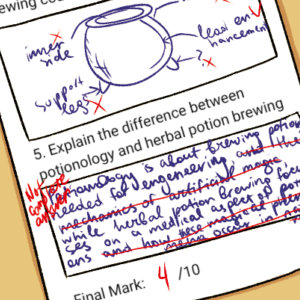 ewing
inner
side
least en
hancement
?
support
legs
5. Explain the difference between
potionology and herbal potion brewing
Not
complete
answer
is about brewing potion
needed for engeneering and the
mechanics of artificial magic
while herbal potion Brewing focu
ses on a medical aspect of pot
ons and how
magic occurs in
Final Mark: 4 /10